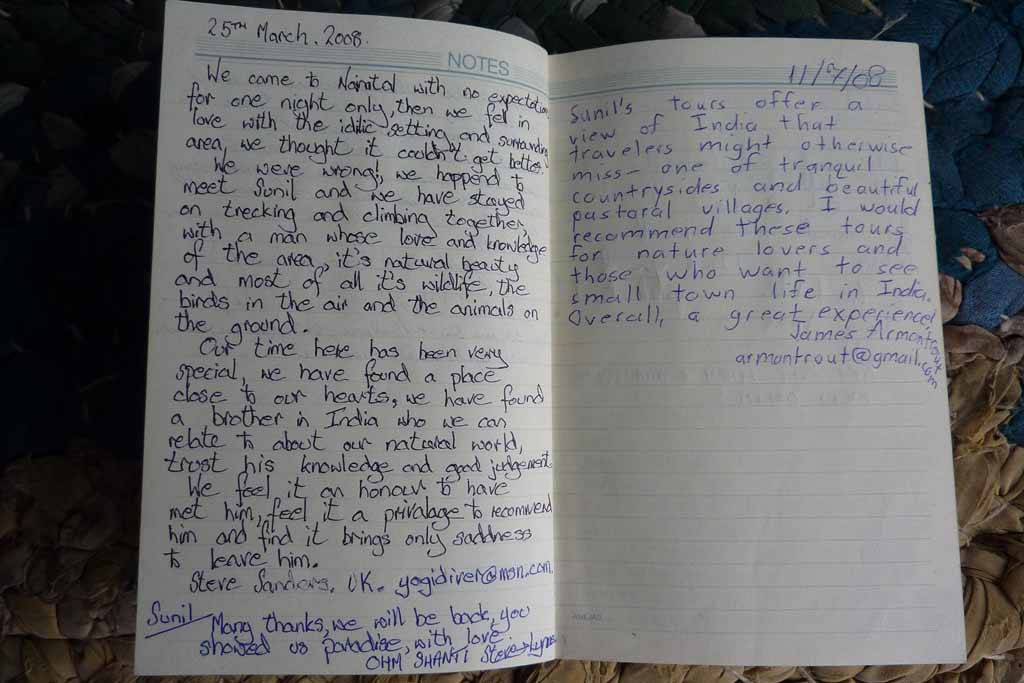 25TH March. 2008.
NOTES
We came to Nainital with no expectation
for one night only, then we fell in
love with the idilic setting and surrounding
area, we thought it couldn't get better.
We were wrong; we happend to
meet Sunil and we have stayed
on trecking and climbing together,
with a man whose love and knowledge
of the area, it's natural beauty
and most of all it's wildlife, the
birds in the air and the animals on
the ground.
Our time here has been very
special, we have found a place
close to our hearts, we have found
a brother in India who we can
relate to about our natural world,
trust his knowledge and good judgement.
We feel it an honour to have
met him, feel it a privalage to recommend
him and find it brings only saddness
to leave him.
Steve Sanders. UK. yogidiver@msn.com.
Sunil Many thanks, we will be back, you
showed us paradise, with love
OHM SHANTI Steve + Lynne
11/9/08
Sunil's tours offer a
view of India that
travelers might otherwise
miss - one of tranquil
countrysides and beautiful
pastoral villages. I would
recommend these tours
for nature lovers and
those who want to see
small town life in India.
Overall, a great experience!
James Armontrout
armontrout@gmail.com